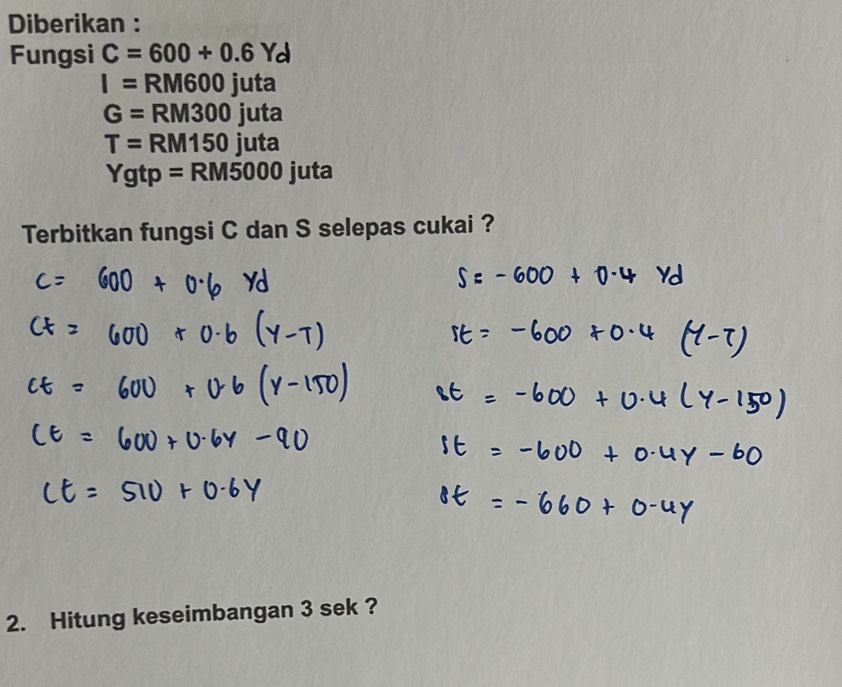 Diberikan :
Fungsi C = 600 + 0.6 Yd
I = RM600 juta
G = RM300 juta
T = RM150 juta
Ygtp = RM5000 juta
Terbitkan fungsi C dan S selepas cukai ?
C = 600 + 0.6 Yd
Ct = 600 + 0.6 (Y-T)
Ct = 600 + 0.6 (Y-150)
Ct = 600 + 0.6Y - 90
Ct = 510 + 0.6Y
S = -600 + 0.4 Yd
St = -600 + 0.4 (Y-T)
St = -600 + 0.4 (Y-150)
St = -600 + 0.4Y - 60
St = -660 + 0.4Y
2. Hitung keseimbangan 3 sek ?